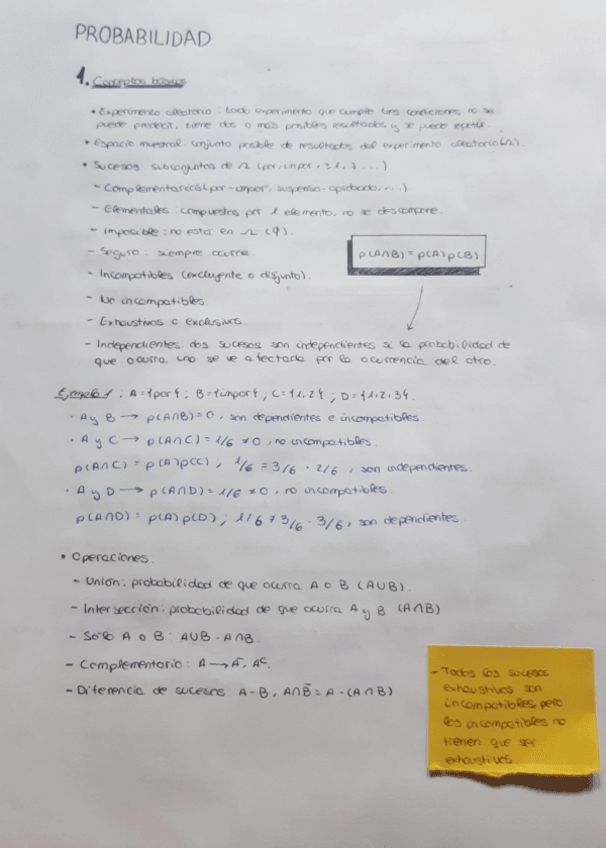 PROBABILIDAD
1. Conceptos básicos
• Experimento aleatorio: todo experimento que cumple unas condiciones no se
puede predecir, tiene dos o más posibles resultados y se puede repetir.
• Espacio muestral: conjunto posible de resultados del experimento aleatorio (Ω).
• Sucesos subconjuntos de Ω (par, impar, 3, 1, 7 ...)
- Complementarios (par-impar, suspenso-aprobado, ...)
- Elementales: compuestos por 1 elemento, no se descompone.
- Imposible: no está en Ω (φ).
- Seguro: siempre ocurre.
p(A∩B) = p(A) p(B)
- Incompatibles (excluyente o disjunto).
- No incompatibles.
- Exhaustivos o exclusivos.
- Independientes: dos sucesos son independientes si la probabilidad de
que ocurra uno se ve afectada por la ocurrencia del otro.
Ejemplo 1: A={par}; B={impar}; C={1,2}; D={1,2,3}.
• A y B → p(A∩B)=0, son dependientes e incompatibles.
• A y C → p(A∩C) = 1/6 ≠ 0, no incompatibles.
p(A∩C) = p(A)p(C); 1/6 = 3/6 · 2/6, son independientes.
• A y D → p(A∩D) = 1/6 ≠ 0, no incompatibles.
p(A∩D) = p(A) p(D); 1/6 ≠ 3/6 · 3/6, son dependientes.
• Operaciones:
- Unión: probabilidad de que ocurra A o B (A∪B).
- Intersección: probabilidad de que ocurra A y B (A∩B)
- Sólo A o B: A∪B - A∩B.
- Complementario: A → Ā, Aᶜ.
- Diferencia de sucesos: A-B, A∩B̄ = A-(A∩B)
- Todos los sucesos
exhaustivos son
incompatibles, pero
los incompatibles no
tienen que ser
exhaustivos.